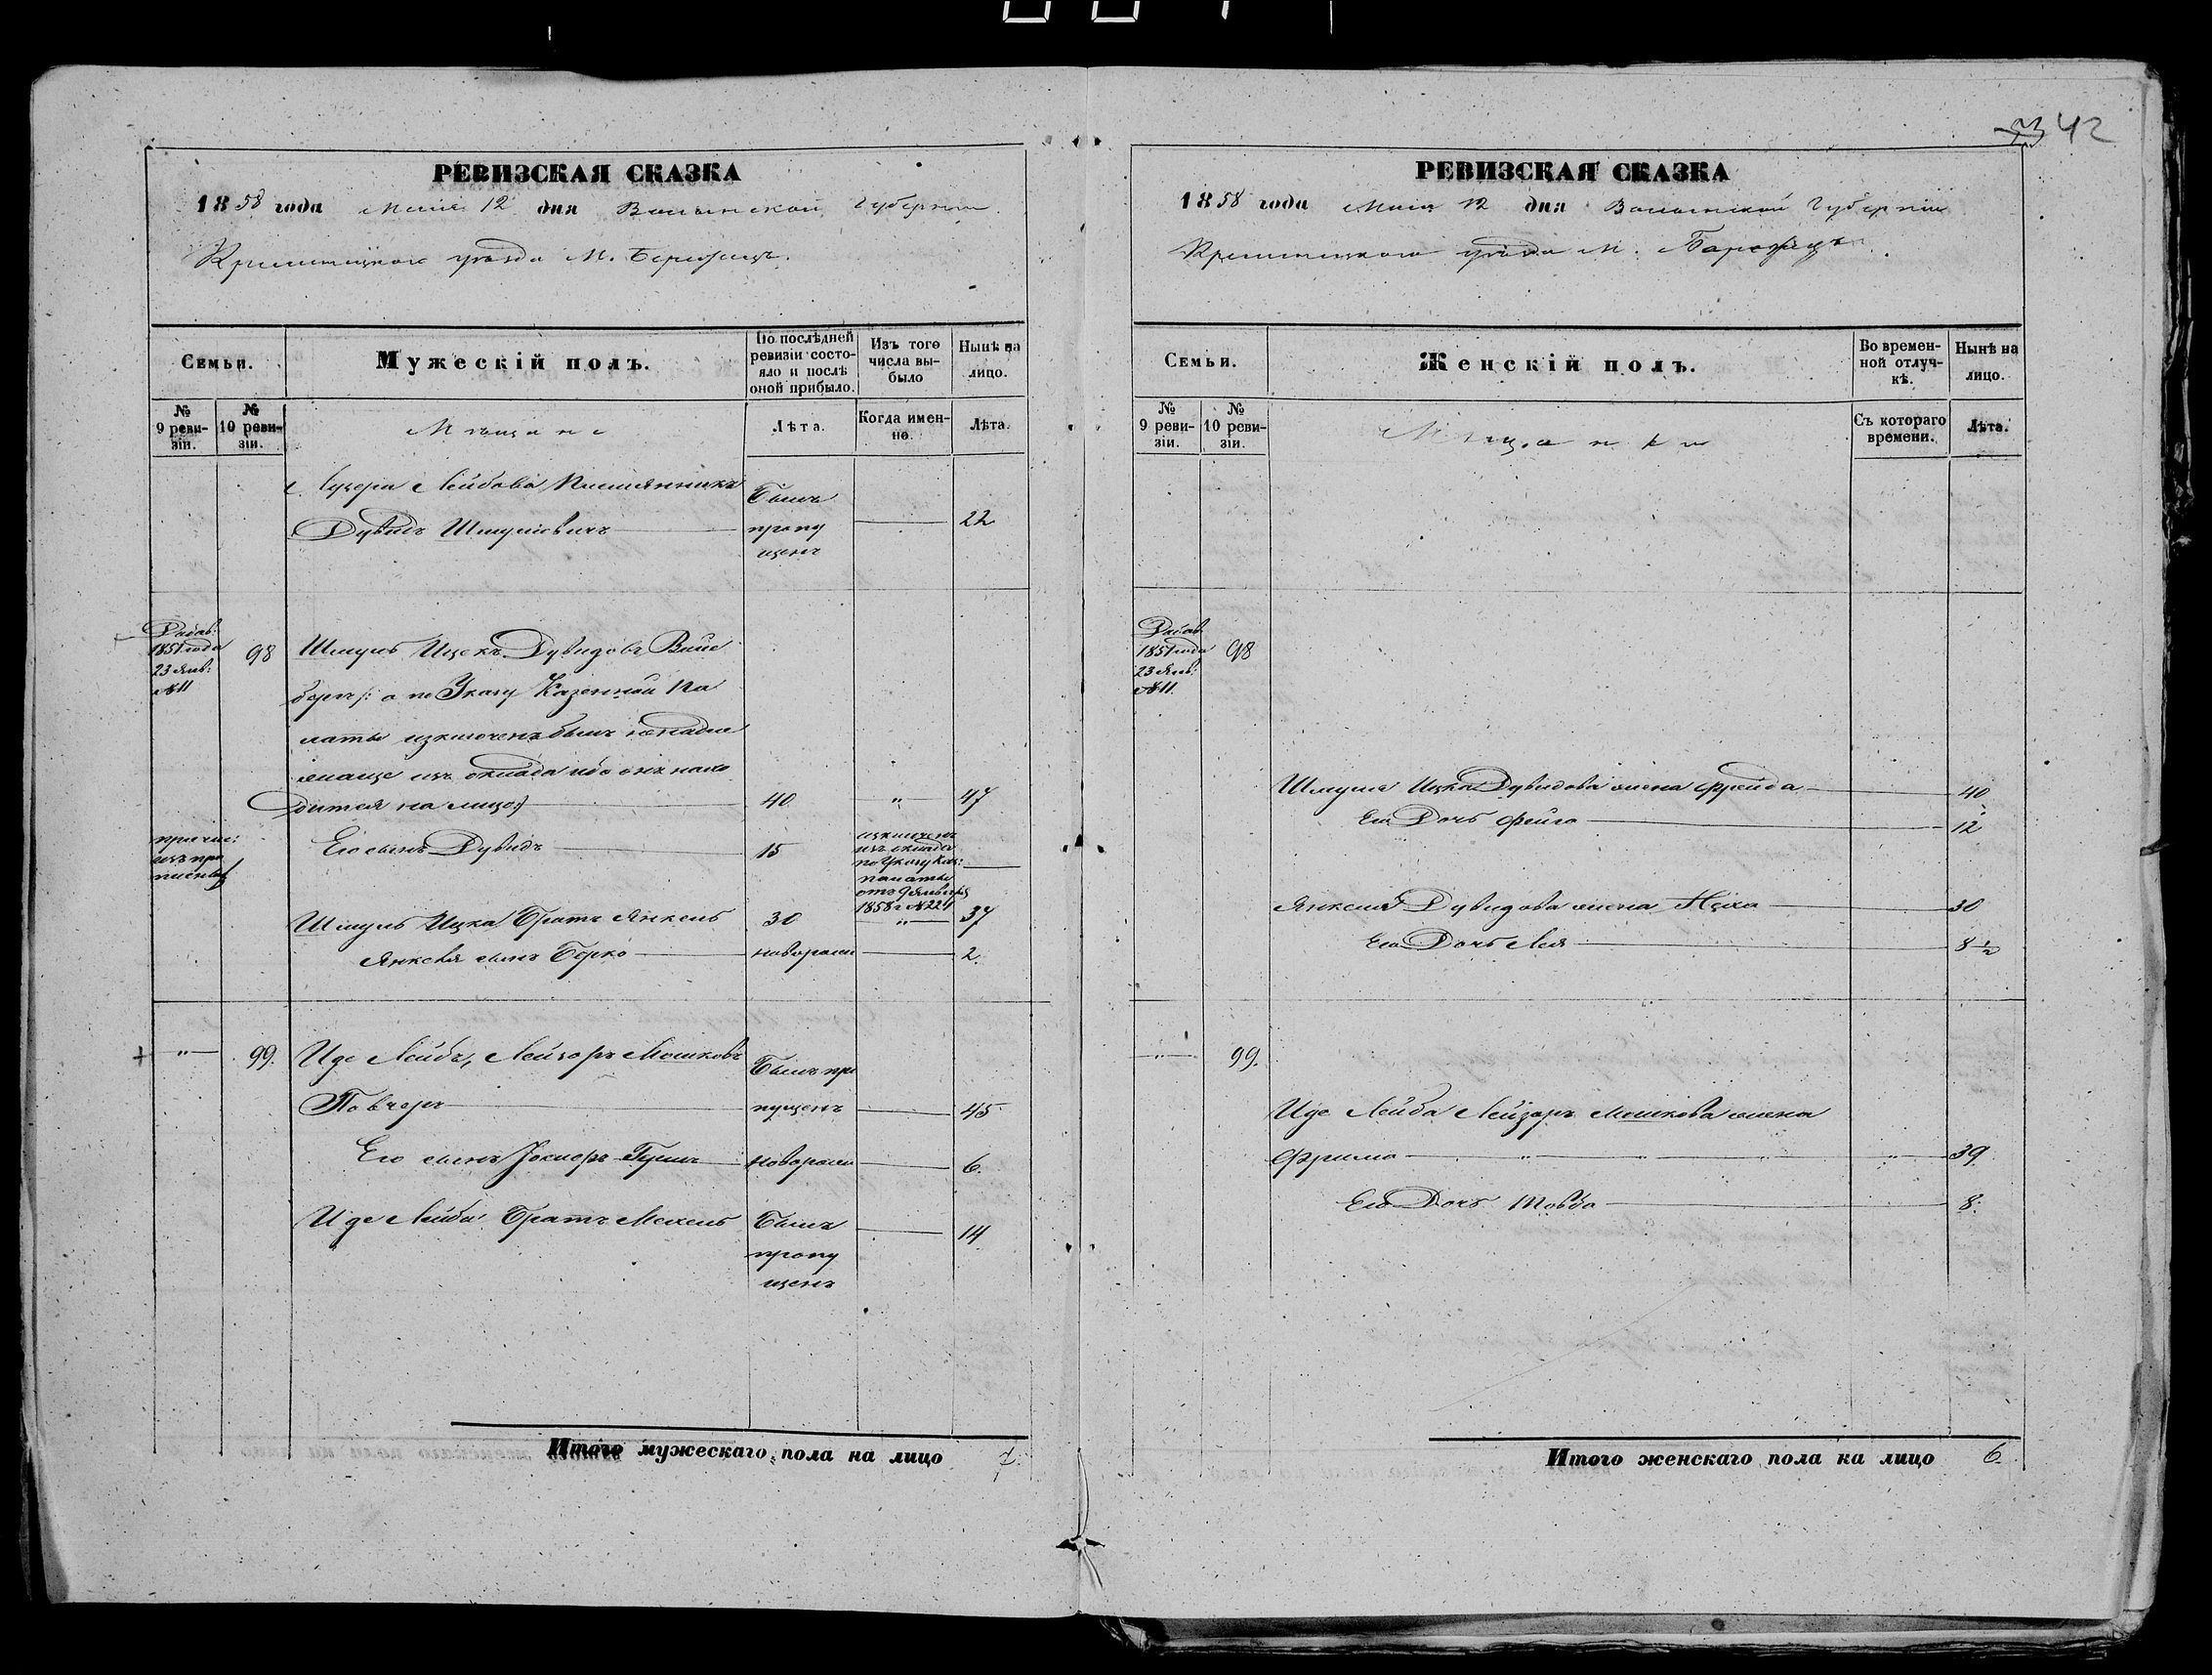 42
РЕВИЗСКАЯ СКАЗКА
1858 года Маія 12 дня Волынской Губерніи
Кременецкаго уѣзда М. Бережецъ.
Семьи.
Мужескій полъ.
По послѣдней ревизіи состояло и послѣ оной прибыло.
Изъ того числа выбыло
Нынѣ на лицо.
№ 9 ревизіи.
№ 10 ревизіи.
Мѣщане
Лѣта.
Когда именно.
Лѣта.
Лейбова Племянникъ
Дувидъ Шмулевичъ
Былъ пропущенъ
22
Добав: 1851 года 23 Янв: №11
98
Шмуль Ицекъ Дувидовъ Вай
бергъ /: а по Указу Казенной Па
латы изключенъ былъ ненадле
жаще изъ оклада ибо онъ нахо
дится на лицо:)
40
"
47
причис: изъ про
Его сынъ Дувидъ
15
изключенъ изъ оклада по Указу Каз: палаты отъ 9 Января 1858 г №224
Шмуль Ицка Братъ Янкель
30
"
37
Янкеля сынъ Берко
новорожд
2.
"
99.
Иде Лейбъ, Лейзоръ Мошковъ
Повчеръ
Былъ пропущенъ
45
Его сынъ Гершъ
новорожд
6.
Иде Лейба Братъ Мехель
Былъ пропущенъ
14
Итого мужескаго пола на лицо 7.
РЕВИЗСКАЯ СКАЗКА
1858 года Маія 12 дня Волынской Губерніи
Кременецкаго уѣзда М. Бережецъ.
Семьи.
Женскій полъ.
Во временной отлучкѣ.
Нынѣ на лицо.
№ 9 ревизіи.
№ 10 ревизіи.
Мѣщанки
Съ котораго времени.
Лѣта.
Добав 1851 года 23 Янв: №11.
98
Шмуля Ицка Дувидова жена Фрейда
40
Его Дочь Фейга
12
Янкеля Дувидова жена Неха
30
Его Дочь Лея
8 ½
"
99.
Иде Лейба Лейзоръ Мошкова жена
Фрима
"
"
"
"
39
Его Дочь Товба
8.
Итого женскаго пола на лицо 6.